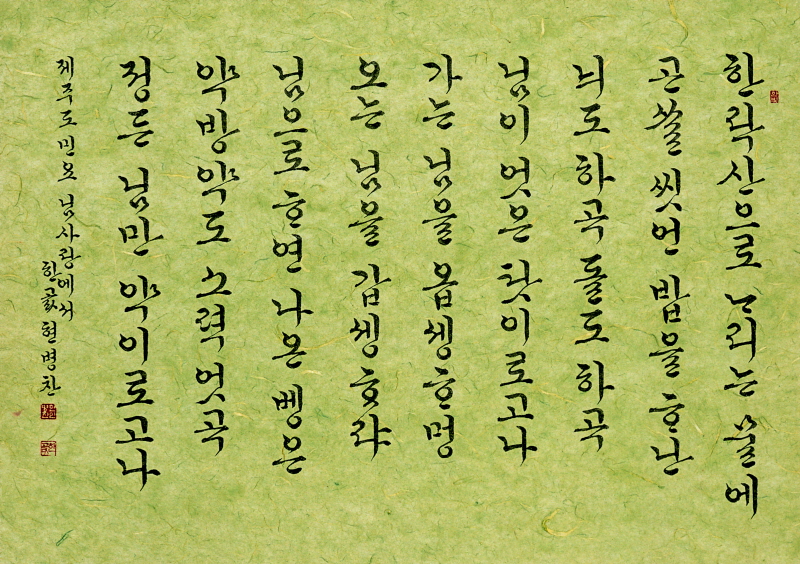 한락산으로 ᄂᆞ리는 물에
곤ᄊᆞᆯ 씻언 밥을 ᄒᆞ난
늬도 하곡 돌도 하곡
님이 엇은 탓이로고나
가는 님을 옵셍ᄒᆞ멍
오는 님을 갑셍ᄒᆞ랴
님으로 ᄒᆞ연 나온 벵은
약방약도 소력 엇곡
정든 님만 약이로고나
제주도 민요 님사랑에서
한곬 현병찬